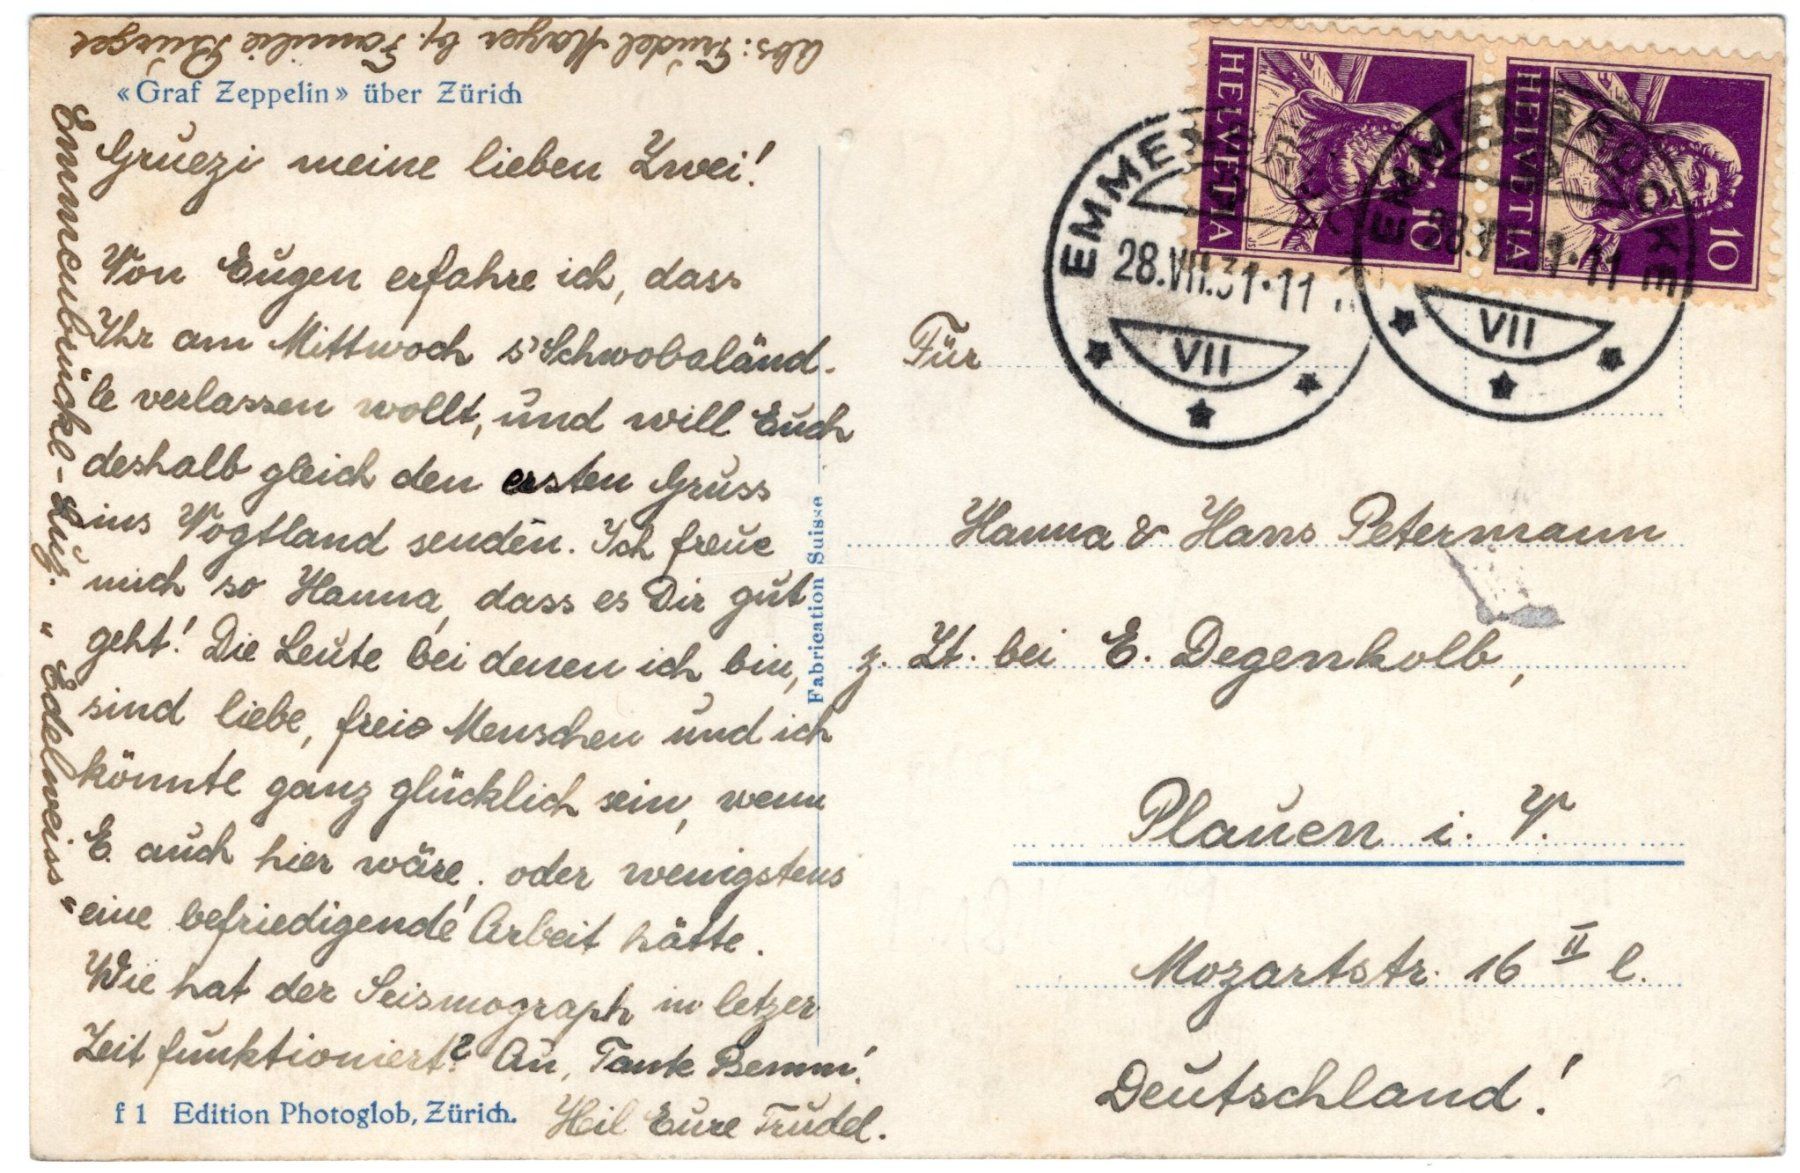 Abs: Trudel Mayer bj. Familie Bürget
Emmenbrücke-Luz. "Edelweiss"
«Graf Zeppelin» über Zürich
Gruezi meine lieben Zwei!
Von Eugen erfahre ich, dass
Ihr am Mittwoch s'Schwobaländ-
le verlassen wollt, und will Euch
deshalb gleich den ersten Gruss
ins Vogtland senden. Ich freue
mich so Hanna, dass es Dir gut
geht! Die Leute bei denen ich bin,
sind liebe, freie Menschen und ich
könnte ganz glücklich sein, wenn
E. auch hier wäre, oder wenigstens
eine befriedigende Arbeit hätte.
Wie hat der Seismograph in letzer
Zeit funktioniert? Au, Tante Bemm!
Heil Eure Trudel.
f 1 Edition Photoglob, Zürich.
Fabrication Suisse
HELVETIA 10
HELVETIA 10
28.VII.31·11
VII
EMMENBRÜCKE
28.VII.31·11
VII
Für
Hanna & Hans Petermann
z. Zt. bei E. Degenkolb,
Plauen i. V.
Mozartstr. 16 II l.
Deutschland!